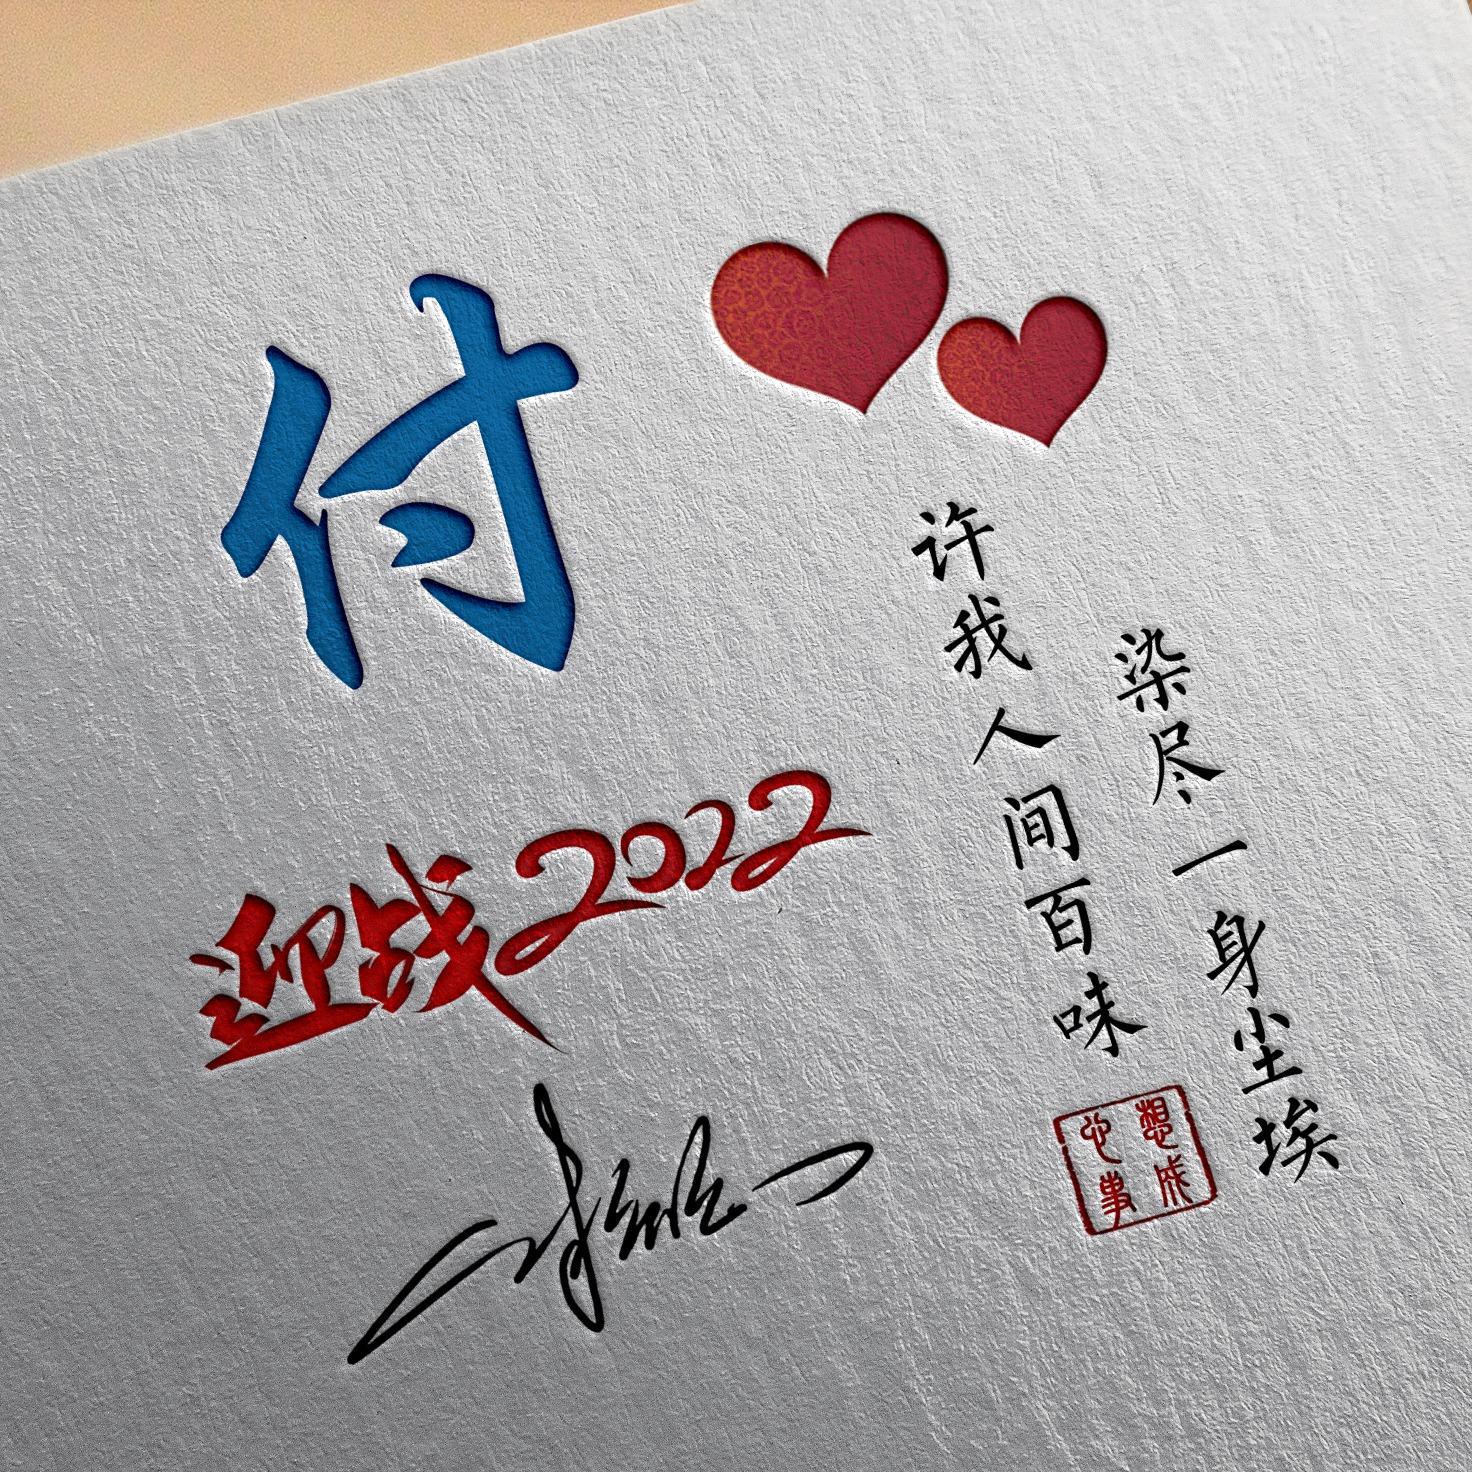 付
染尽一身尘埃
许我人间百味
迎战2022
想成
心事